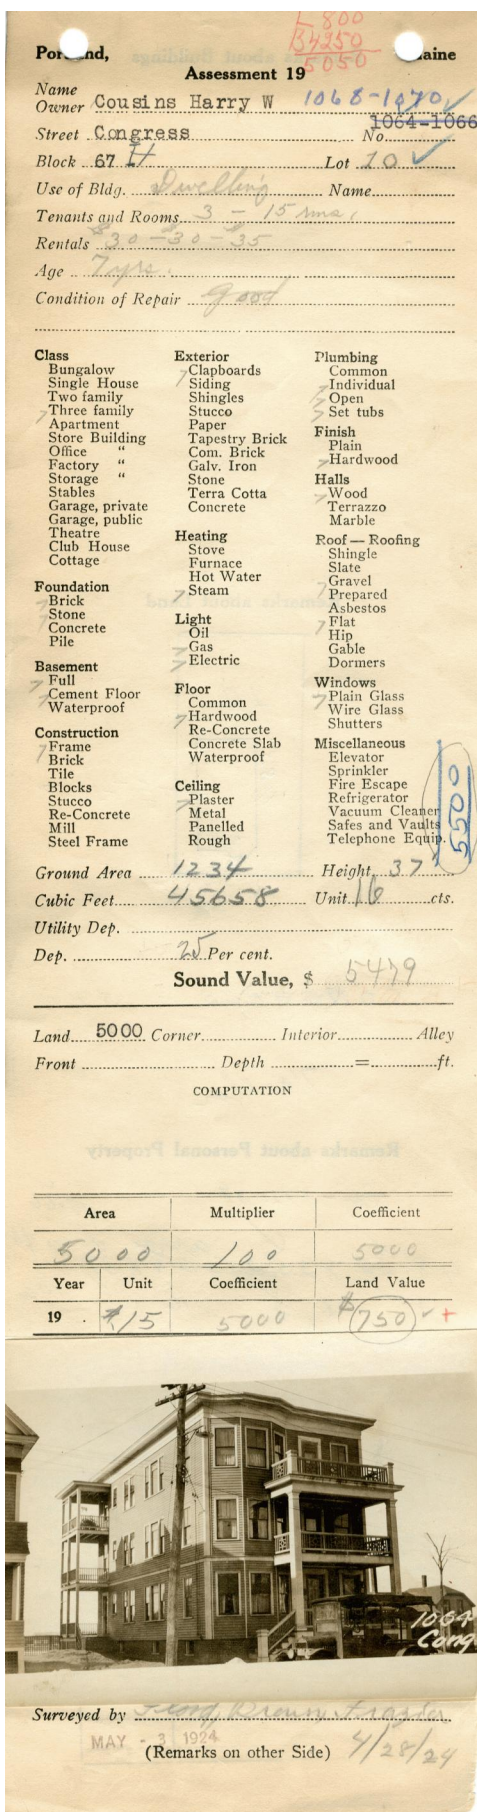 L 800
B 4250
5050
Portland, Maine
Assessment 19
Name
Owner Cousins Harry W 1068-1070 ✓
Street Congress No. 1064-1066
Block 67 H Lot 10 ✓
Use of Bldg. Dwelling Name
Tenants and Rooms 3 - 15 rms.
Rentals $30 - $30 - $35
Age 7 yrs.
Condition of Repair good
Class
Bungalow
Single House
Two family
Three family
Apartment
Store Building
Office "
Factory "
Storage "
Stables
Garage, private
Garage, public
Theatre
Club House
Cottage
Foundation
Brick
Stone
Concrete
Pile
Basement
Full
Cement Floor
Waterproof
Construction
Frame
Brick
Tile
Blocks
Stucco
Re-Concrete
Mill
Steel Frame
Exterior
Clapboards
Siding
Shingles
Stucco
Paper
Tapestry Brick
Com. Brick
Galv. Iron
Stone
Terra Cotta
Concrete
Heating
Stove
Furnace
Hot Water
Steam
Light
Oil
Gas
Electric
Floor
Common
Hardwood
Re-Concrete
Concrete Slab
Waterproof
Ceiling
Plaster
Metal
Panelled
Rough
Plumbing
Common
Individual
Open
Set tubs
Finish
Plain
Hardwood
Halls
Wood
Terrazzo
Marble
Roof — Roofing
Shingle
Slate
Gravel
Prepared
Asbestos
Flat
Hip
Gable
Dormers
Windows
Plain Glass
Wire Glass
Shutters
Miscellaneous
Elevator
Sprinkler
Fire Escape
Refrigerator
Vacuum Cleaner
Safes and Vaults
Telephone Equip.
5500
Ground Area 1234 Height 37
Cubic Feet 45658 Unit 16 cts.
Utility Dep.
Dep. 25 Per cent.
Sound Value, $ 5479
Land 5000 Corner Interior Alley
Front Depth = ft.
COMPUTATION
Remarks about Personal Property
Area Multiplier Coefficient
5000 100 5000
Year Unit Coefficient Land Value
19 . $.15 5000 $750 ✓ +
1064
Cong
Surveyed by Brown, Frazier
MAY - 3 1924
(Remarks on other Side) 4/28/24